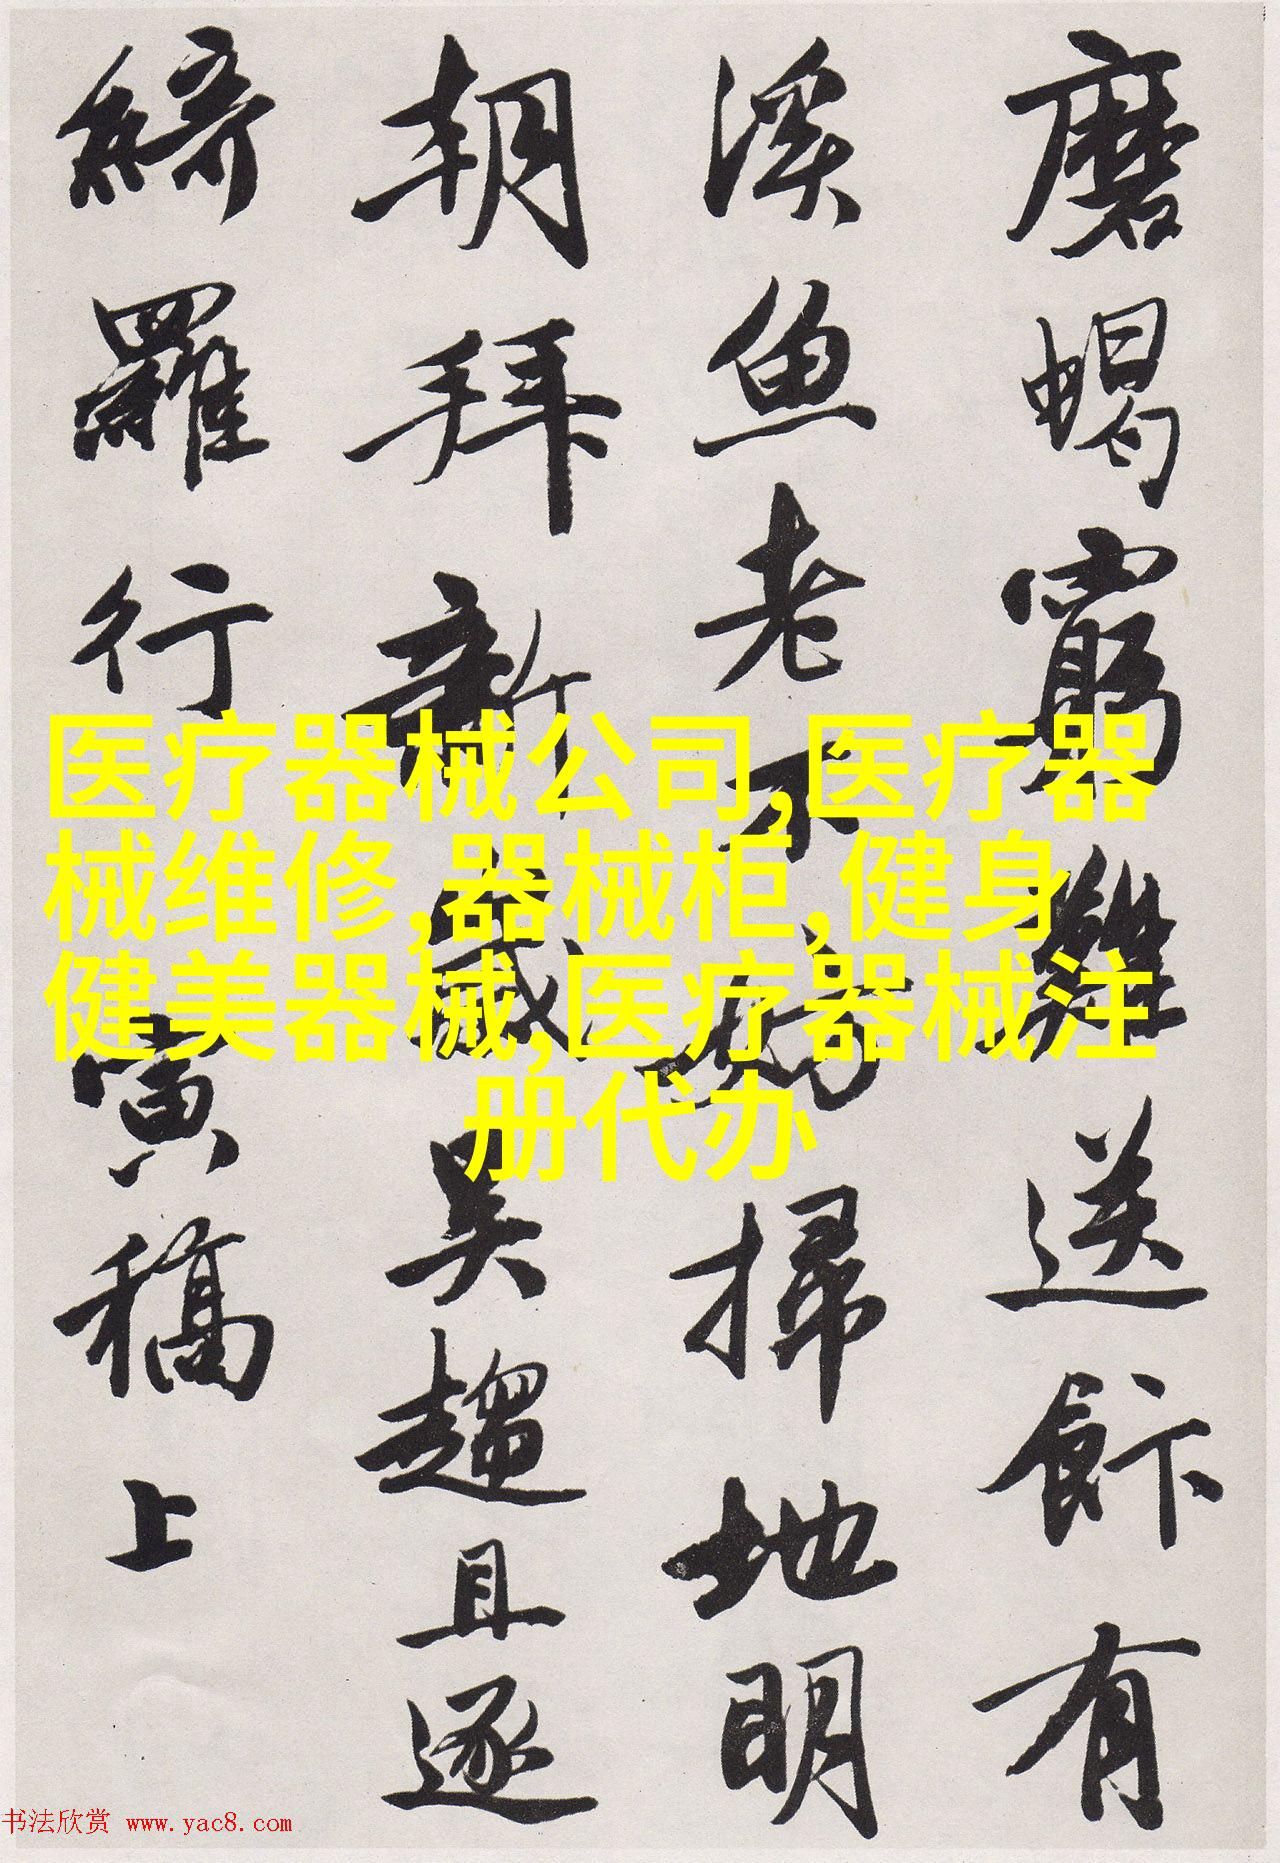 磨蝎窮難送飰有
溪魚老不妨掃地明
朝拜新歲吴趨且逐
綺羅行 寅稿上
医疗器械公司,医疗器
械维修,器械柜,健身
健美器械,医疗器械注
册代办
书法欣赏 www.yac8.com